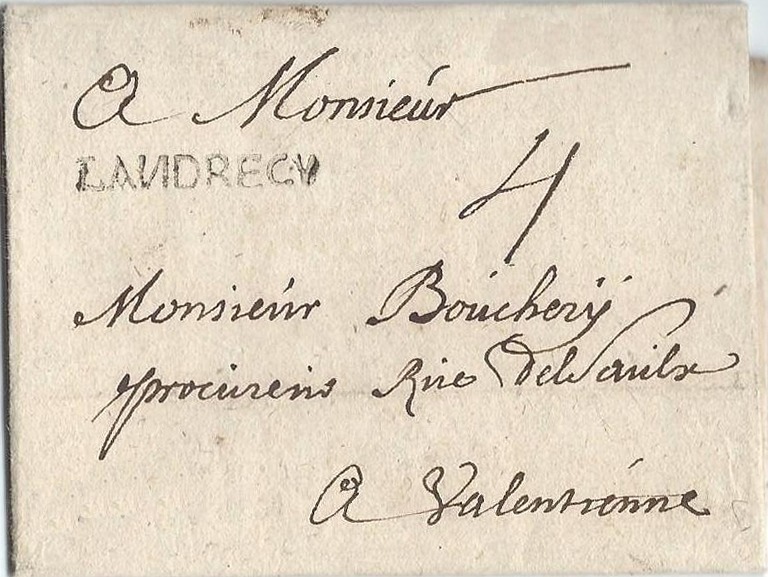 A Monsieur
LANDRECY
4
Monsieur Boucherÿ
procureur Rue delSaulx
A Valentienne